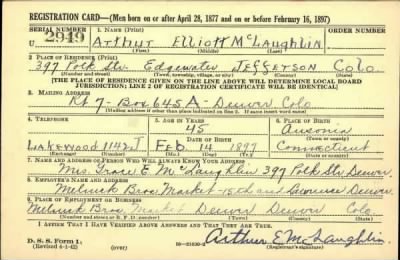 REGISTRATION CARD—(Men born on or after April 28, 1877 and on or before February 16, 1897)
SERIAL NUMBER 1. NAME (Print) ORDER NUMBER
U 2949 Arthur Elliott McLaughlin
(First) (Middle) (Last)
2. PLACE OF RESIDENCE (Print)
397 Polk Str. Edgewater Jefferson Colo.
(Number and street) (Town, township, village, or city) (County) (State)
[THE PLACE OF RESIDENCE GIVEN ON THE LINE ABOVE WILL DETERMINE LOCAL BOARD
JURISDICTION; LINE 2 OF REGISTRATION CERTIFICATE WILL BE IDENTICAL]
3. MAILING ADDRESS
Rt 7-Box 645A-Denver Colo
[Mailing address if other than place indicated on line 2. If same insert word same]
4. TELEPHONE 5. AGE IN YEARS 6. PLACE OF BIRTH
45 Ansonia
DATE OF BIRTH
Lakewood 1142J Feb 14 1897 Connecticut
(Exchange) (Number) (Mo.) (Day) (Yr.) (State or country)
7. NAME AND ADDRESS OF PERSON WHO WILL ALWAYS KNOW YOUR ADDRESS
Mrs. Grace E. McLaughlin 397 Polk Str. Denver
8. EMPLOYER'S NAME AND ADDRESS
Melnick Bros. Market-15th and Lawrence Denver
9. PLACE OF EMPLOYMENT OR BUSINESS
Melnick Bros. Market Denver Denver Colo
(Number and street or R. F. D. number) (Town) (County) (State)
I AFFIRM THAT I HAVE VERIFIED ABOVE ANSWERS AND THAT THEY ARE TRUE.
D. S. S. Form 1
(Revised 4-1-42) (over) Arthur E McLaughlin
(Registrant's signature)